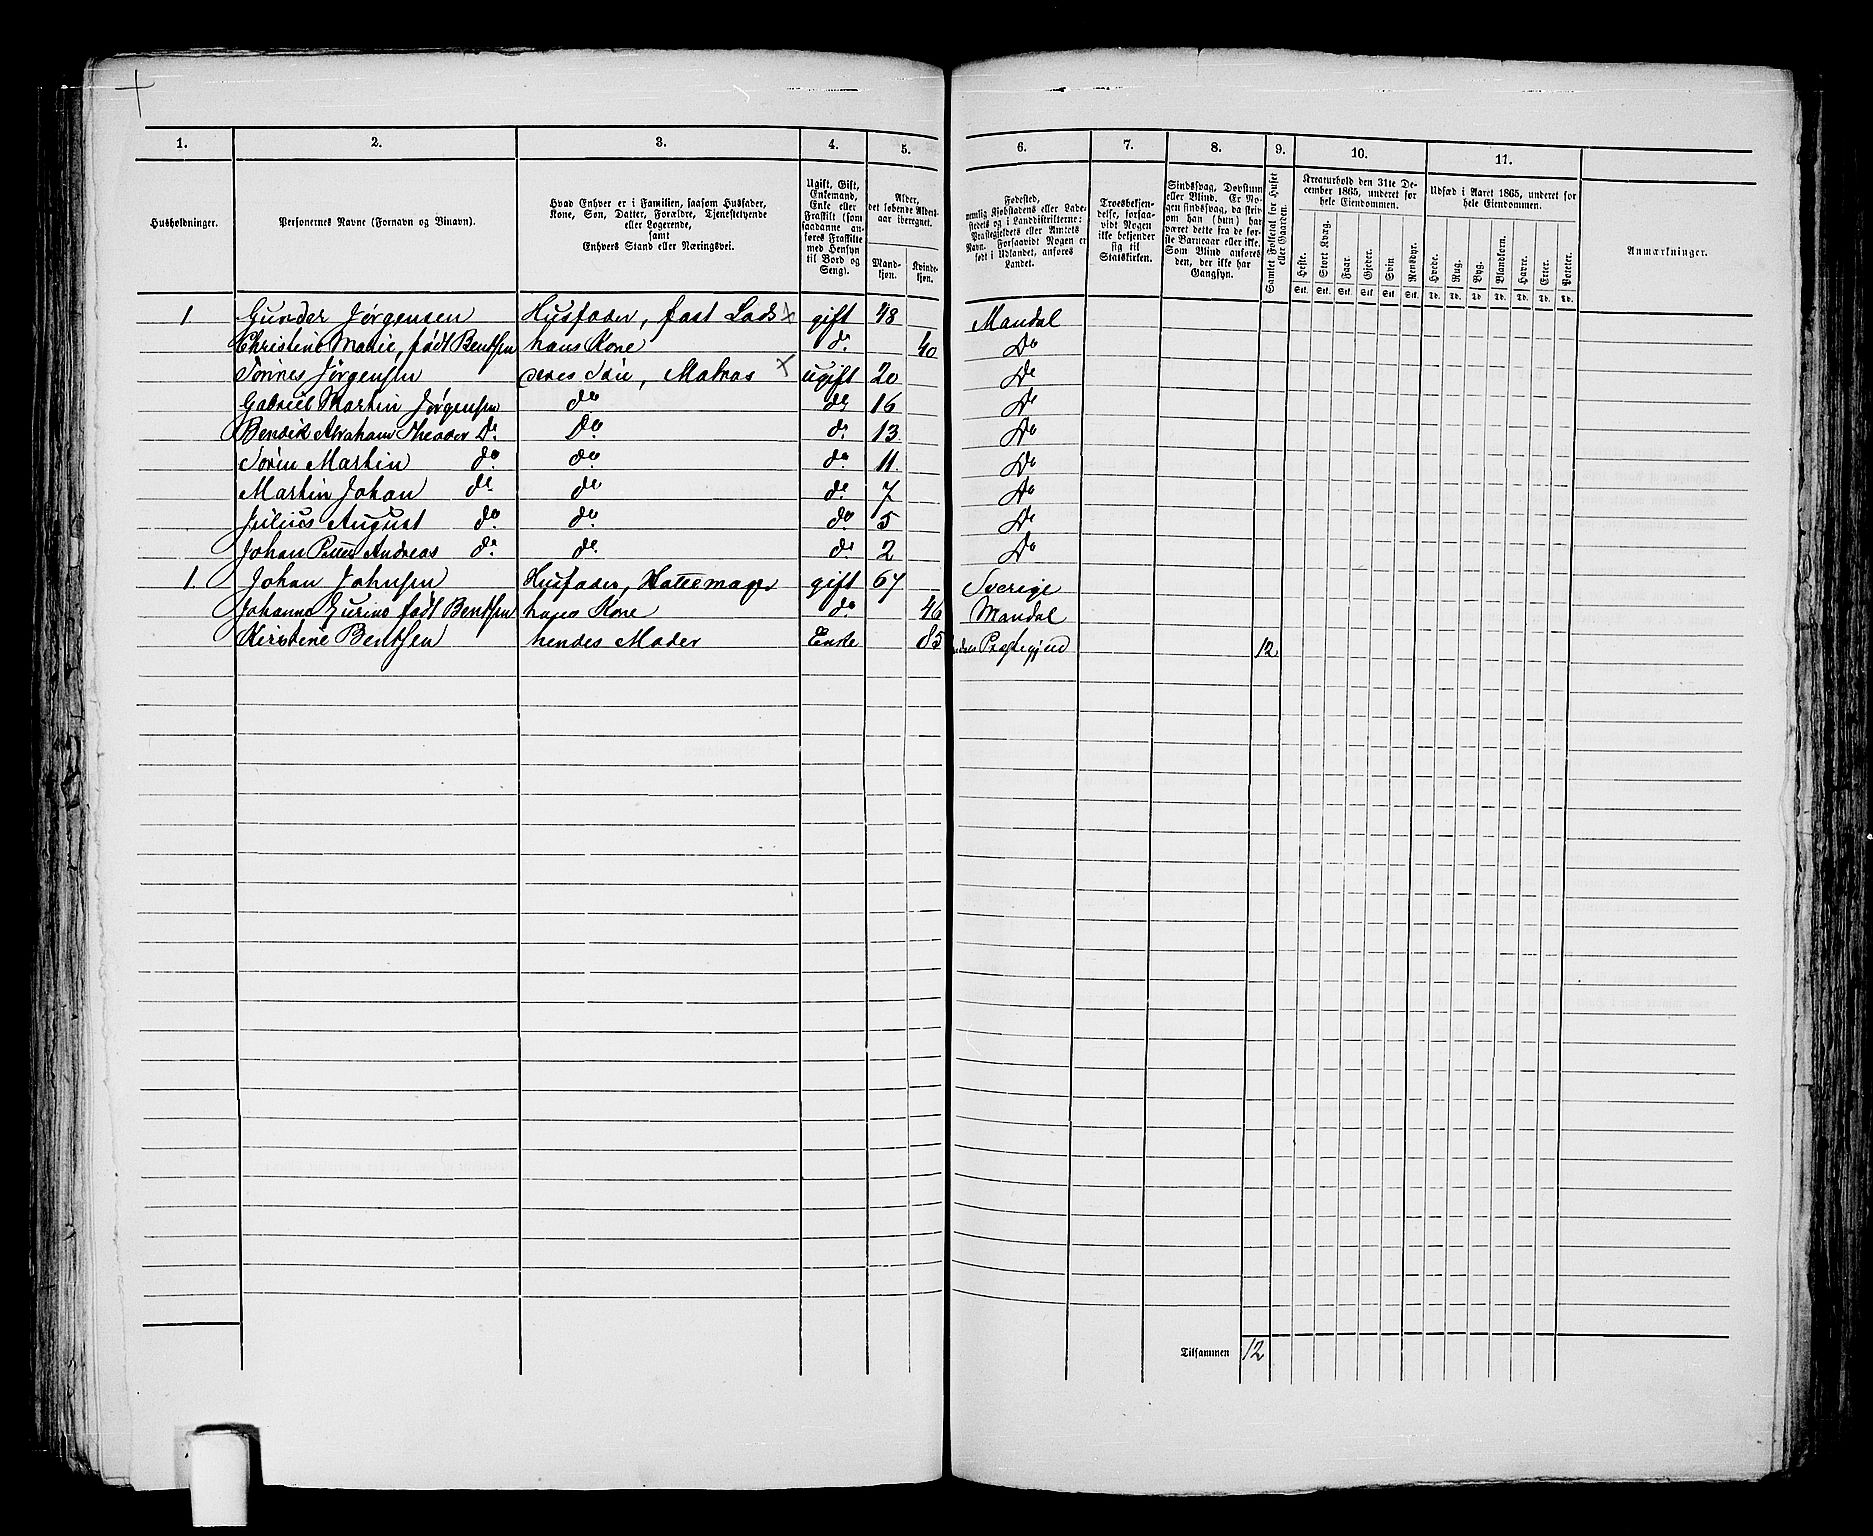 1. 2. 3. 4. 5. 6. 7. 8. 9. 10. 11.
Husholdninger.
Personernes Navne (Fornavn og Binavn).
Hvad Enhver er i Familien, saasom Husfader,
Kone, Søn, Datter, Forældre, Tjenestetyende
eller Logerende,
samt
Enhvers Stand eller Næringsvei.
Ugift, Gift,
Enkemand,
Enke eller
Fraskilt (som
saadanne an-
føres Fraskilte
med Hensyn
til Bord og
Seng).
Alder,
det løbende Alders-
aar iberegnet.
Mand-
kjøn.
Kvinde-
kjøn.
Fødested,
nemlig Kjøbstadens eller Lade-
stedets og i Landdistrikterne:
Præstegjældets eller Amtets
Navn. Forsaavidt Nogen er
født i Udlandet, anføres
Landet.
Troesbekjen-
delse, forsaa-
vidt Nogen
ikke bekjender
sig til
Statskirken.
Sindssvag, Døvstum
eller Blind. Er No-
gen sindssvag, da skriv
om han (hun) har
været dette fra de før-
ste Barneaar eller ikke.
Som Blind anføres
den, der ikke har
Gangsyn.
Samlet Folketal for Huset
eller Gaarden.
Kreaturhold den 31te De-
cember 1865, underet for
hele Eiendommen.
Heste. Stort Kvæg. Faar. Gjeder. Svin Rensdyr.
Stk. Stk. Stk. Stk. Stk. Stk.
Udsæd i Aaret 1865, underet for
hele Eiendommen.
Hvede. Rug. Byg. Blandkorn. Havre. Erter. Poteter.
Td. Td. Td. Td. Td. Td. Td.
Anmærkninger.
1 Gunder Jørgensen Husfader, fast Lods × gift 48 Mandal
Christine Marie, født Bentsen hans Kone do 40 Do
Tønnes Jørgensen deres Søn, Matros × ugift 20 Do
Gabriel Martin Jørgensen do do 16 Do
Bendik Abraham Theodor Do Do do 13 Do
Sørin Martin do do do 11 Do
Martin Johan do do do 7 Do
Julius August do do do 5 Do
Johan Peter Andreas do do do 2 Do
1 Johan Johnsen Husfader, Hattemager gift 67 Sverige
Johanne Gurine født Bentsen hans Kone do 46 Mandal
Kirstene Bentsen hendes Moder Enke 85 Præstegjeld 12
Tilsammen 12